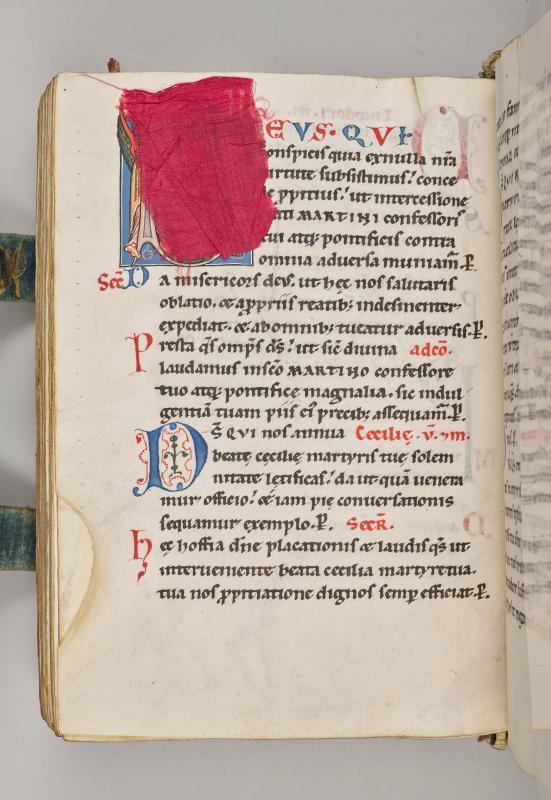 EVS · QVI
onspicis quia ex nulla nr̄a
irtute subsistimus. conce
e ꝓpitius. ut intercessione
ati MARTINI confessoris
tui atq; pontificis contra
omnia adversa muniam̄. P.
Sec̄ Da misericors deus. ut hec nos salutaris
oblatio. & a ꝓpriis reatib; indesinenter
expediat. & ab omnib; tueatur adversis. P.
Presta qs̄ omp̄s ds̄. ut sic̄ divina ad cō.
laudamus in sc̄o MARTINO confessore
tuo atq; pontifice magnalia. sic indul
gentiā tuam piis ei' precib; assequam̄. P.
Ds̄ QVI nos annua Cecilię. v̄. & m.
beatę cecilię martyris tuę solem
nitate letificas. da ut quā venera
mur officio. etiam pię conversationis
sequamur exemplo. P. Secr̄.
hęc hostia dn̄e placationis & laudis qs̄ ut
interveniente beata cecilia martyre tua.
tua nos ꝓpitiatione dignos semp̄ efficiat. P.